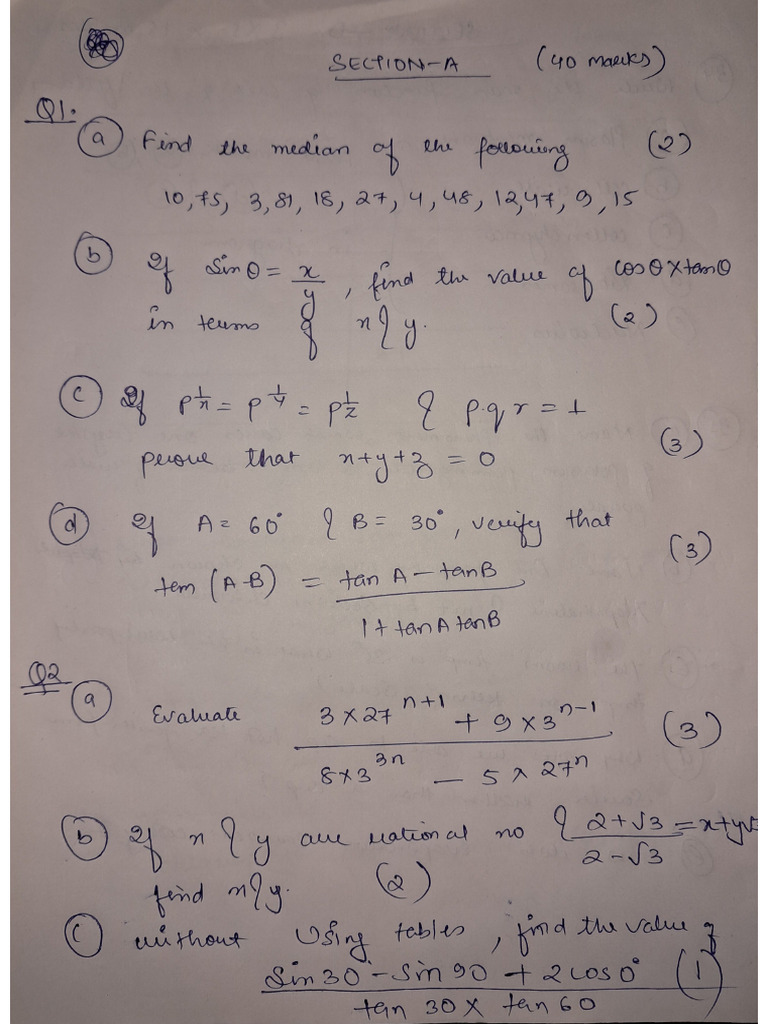 SECTION-A (40 marks)
Q1.
(a) Find the median of the following (2)
10, 75, 3, 81, 18, 27, 4, 48, 12, 47, 9, 15
(b) If Sinθ = x/y, find the value of cosθ x tanθ
in terms of x & y. (2)
(c) If p^1/x = p^1/y = p^1/z & p.q r = 1
prove that x+y+z = 0 (3)
(d) If A = 60° & B = 30°, verify that
tan (A-B) = tan A - tanB / 1 + tanA tanB (3)
Q2
(a) Evaluate 3 x 27^n+1 + 9 x 3^n-1 / 8 x 3^3n - 5 x 27^n (3)
(b) If x & y are rational no & 2+√3 / 2-√3 = x+y√
find x & y. (2)
(c) without Using tables, find the value of
Sin 30 - sin 90 + 2 cos 0° / tan 30 x tan 60 (1)